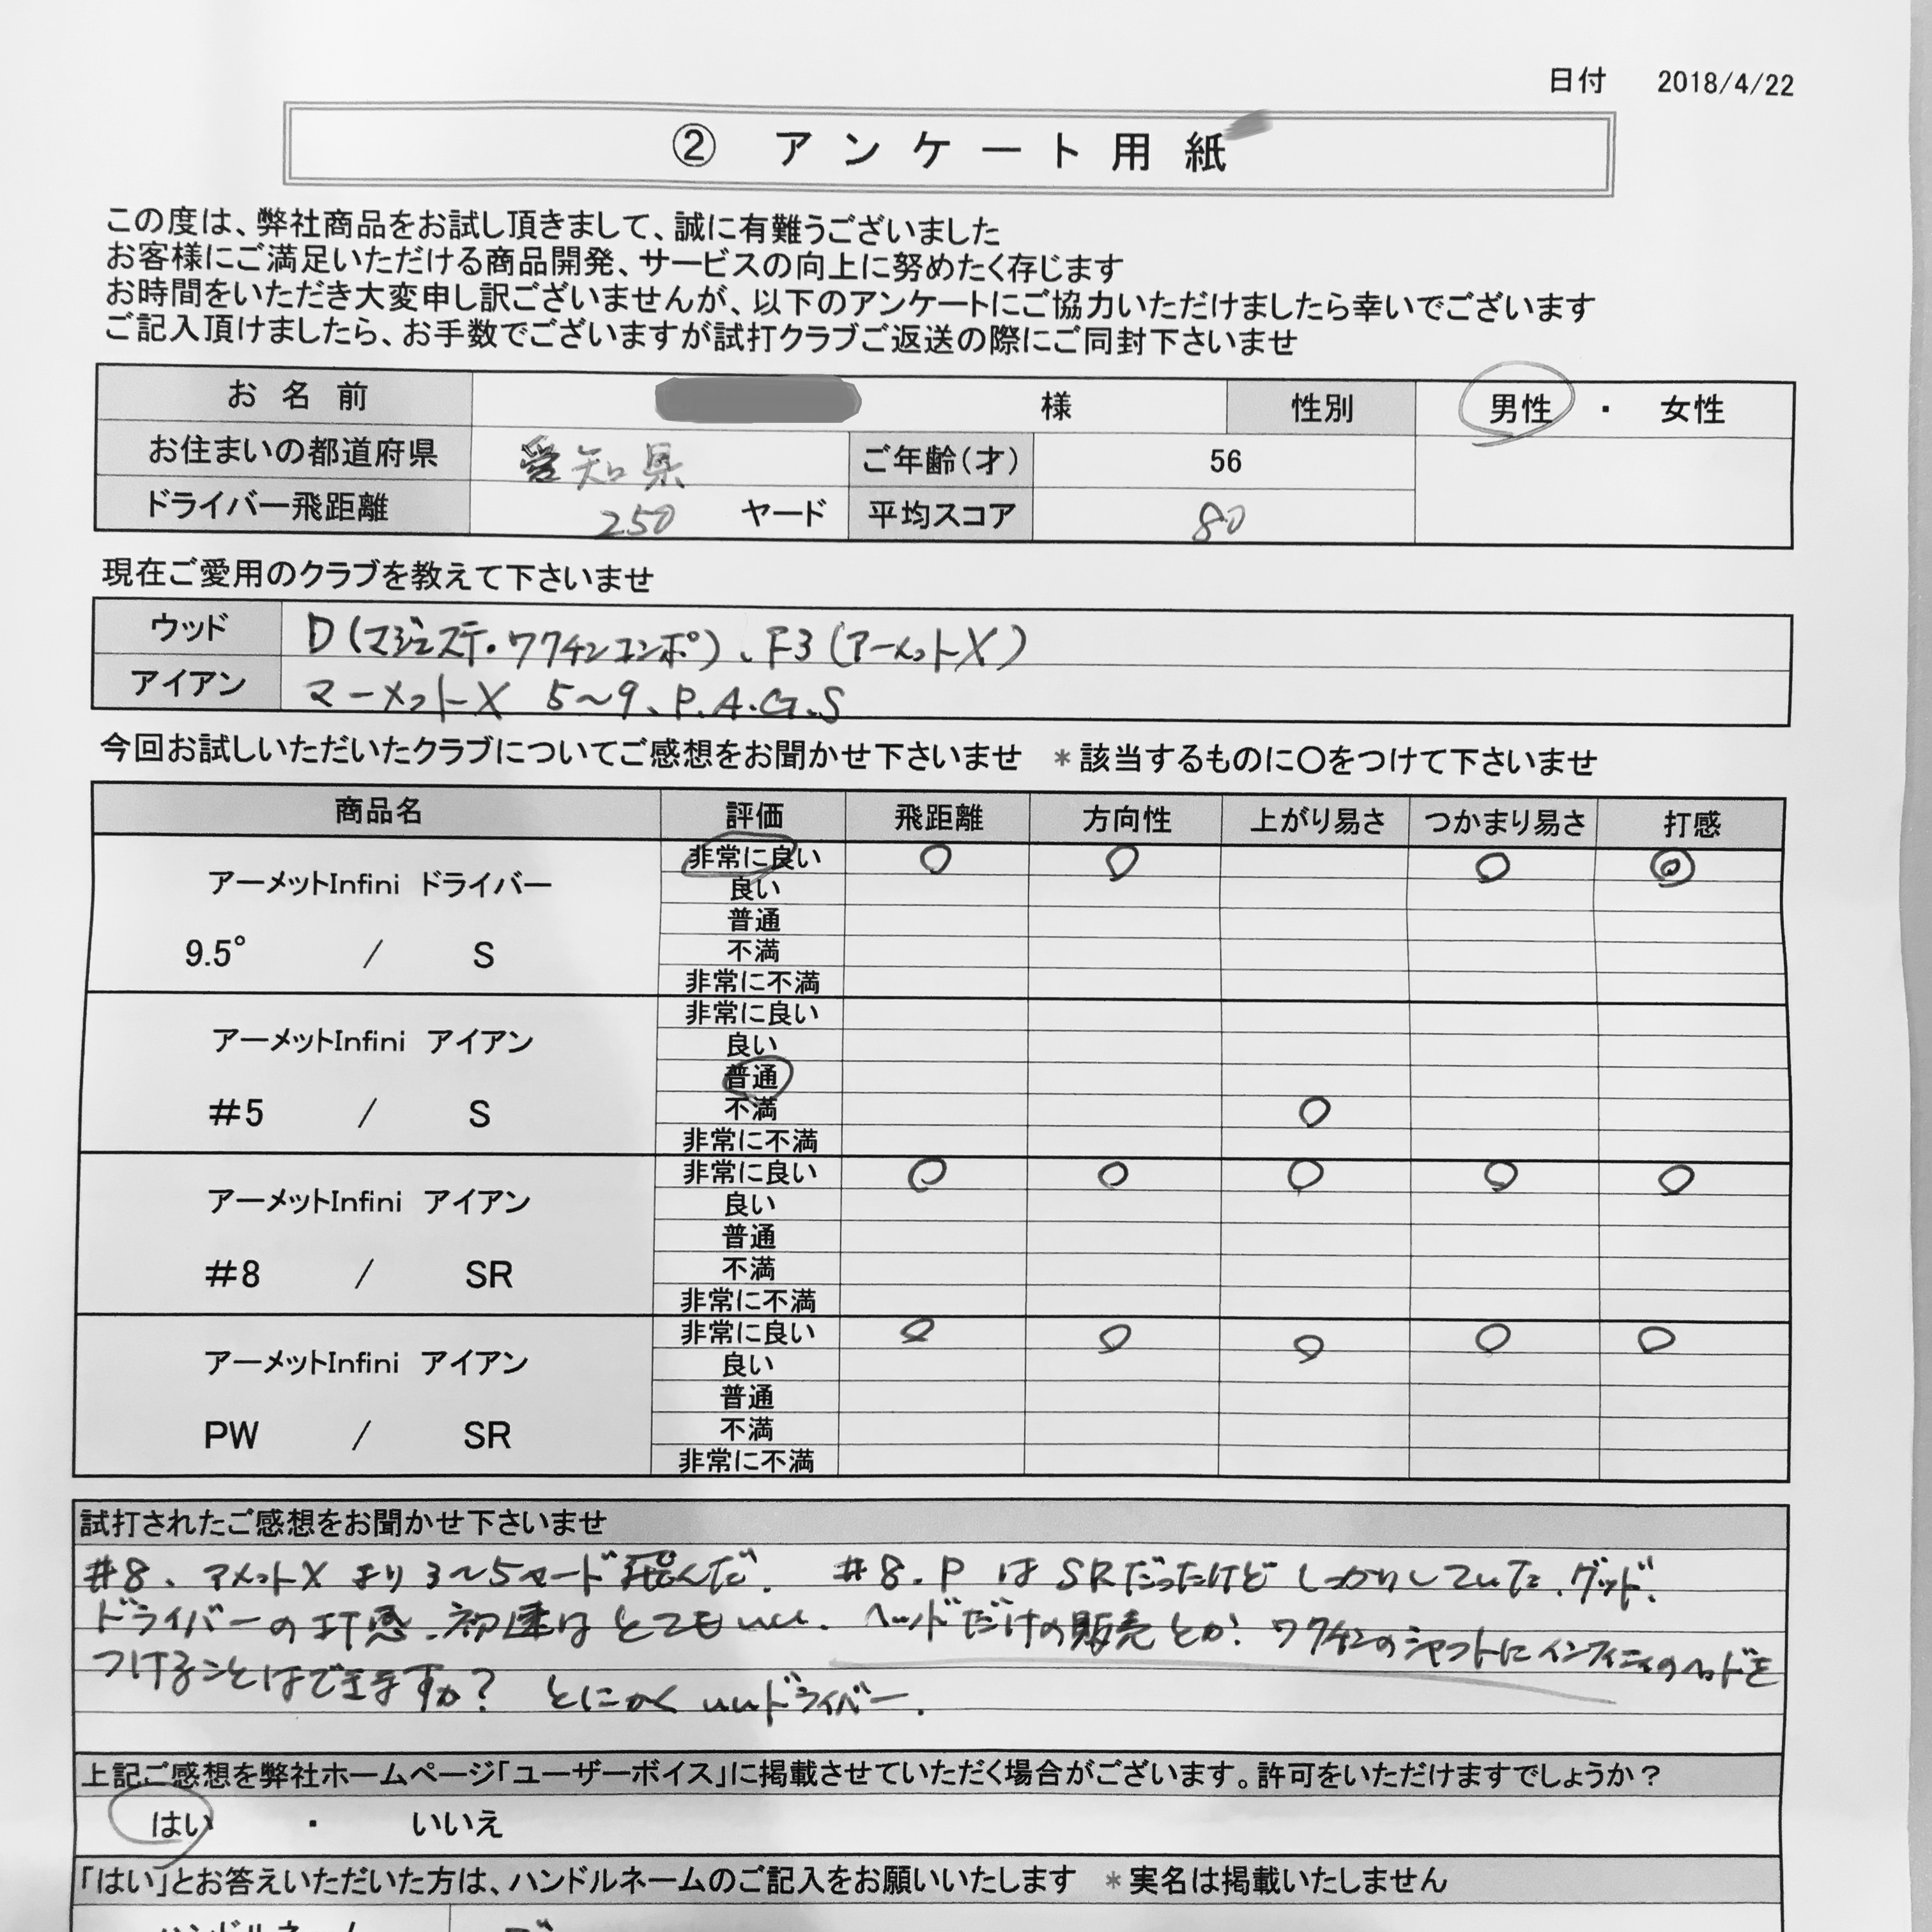 日付 2018/4/22
② アンケート用紙
この度は、弊社商品をお試し頂きまして、誠に有難うございました
お客様にご満足いただける商品開発、サービスの向上に努めたく存じます
お時間をいただき大変申し訳ございませんが、以下のアンケートにご協力いただけましたら幸いでございます
ご記入頂けましたら、お手数でございますが試打クラブご返送の際にご同封下さいませ
お名前 様 性別 男性 ・ 女性
お住まいの都道府県 愛知県 ご年齢(才) 56
ドライバー飛距離 250 ヤード 平均スコア 80
現在ご愛用のクラブを教えて下さいませ
ウッド D(マジェステ・ワクチンコンポ)、F3(アーメットX)
アイアン マーメットX 5～9、P.A.G.S
今回お試しいただいたクラブについてご感想をお聞かせ下さいませ *該当するものに○をつけて下さいませ
商品名 評価 飛距離 方向性 上がり易さ つかまり易さ 打感
アーメットInfini ドライバー
9.5° / S
非常に良い ○ ○ ○ ◎
良い
普通
不満
非常に不満
アーメットInfini アイアン
#5 / S
非常に良い
良い
普通
不満 ○
非常に不満
アーメットInfini アイアン
#8 / SR
非常に良い ○ ○ ○ ○ ○
良い
普通
不満
非常に不満
アーメットInfini アイアン
PW / SR
非常に良い ○ ○ ○ ○ ○
良い
普通
不満
非常に不満
試打されたご感想をお聞かせ下さいませ
#8、アメットX より3～5ヤード飛んだ. #8.P はSRだったけど しっかりしていた.グッド.
ドライバーの打感.初速はとてもいい. ヘッドだけの販売とか? ワクチンのシャフトにインフィニィのヘッドを
つけることはできますか? とにかくいいドライバー.
上記ご感想を弊社ホームページ「ユーザーボイス」に掲載させていただく場合がございます。許可をいただけますでしょうか？
はい ・ いいえ
「はい」とお答えいただいた方は、ハンドルネームのご記入をお願いいたします *実名は掲載いたしません
ハンドルネーム